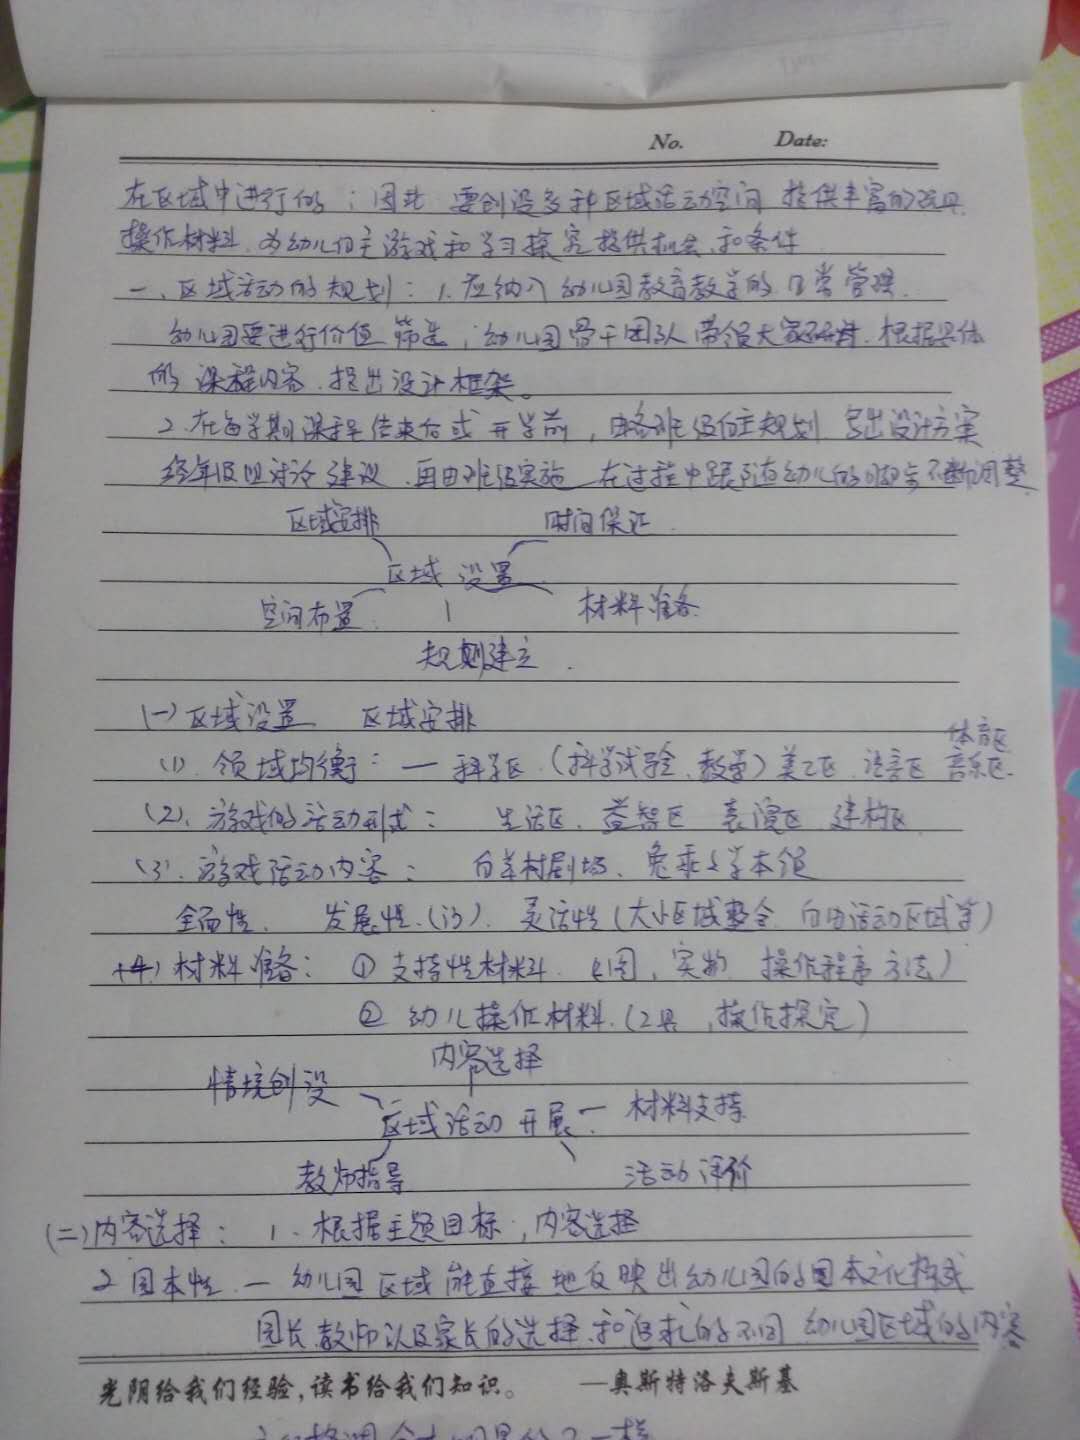 No. Date:
在区域中进行的；因此 要创设多种区域活动空间 提供丰富的玩具
操作材料，为幼儿自主游戏和学习探究提供机会和条件
一、区域活动的规划：1.应纳入幼儿园教育教学的日常管理.
幼儿园要进行价值筛选，幼儿园骨干团队带领大家研讨.根据具体
的课程内容.提出设计框架。
2.在每学期课程结束后或开学前，由各班级自主规划 写出设计方案
经年级组讨论建议.再由班级实施 在过程中跟随幼儿的 不断调整
区域安排 时间保证
区域设置
空间布置 材料准备
规则建立.
(一)区域设置 区域安排
体育区
(1).领域均衡：一科学区.(科学试验、数学)美工区.语言区 音乐区.
(2).游戏的活动形式： 生活区.益智区 表演区 建构区
(3).游戏活动内容： 羊村剧场、
全面性. 发展性. 灵活性(大小区域整合 自由活动区域等)
(4)材料准备：①支持性材料.(图，实物 操作程序方法)
②幼儿操作材料.(工具，操作探究)
内容选择
情境创设
区域活动开展 材料支持
教师指导 活动评价
(二)内容选择：1.根据主题目标，内容选择
2园本性.一幼儿园区域能直接地反映出幼儿园的园本文化构成
园长教师以及家长的选择和追求的不同 幼儿园区域的内容
光阴给我们经验，读书给我们知识。 —奥斯特洛夫斯基